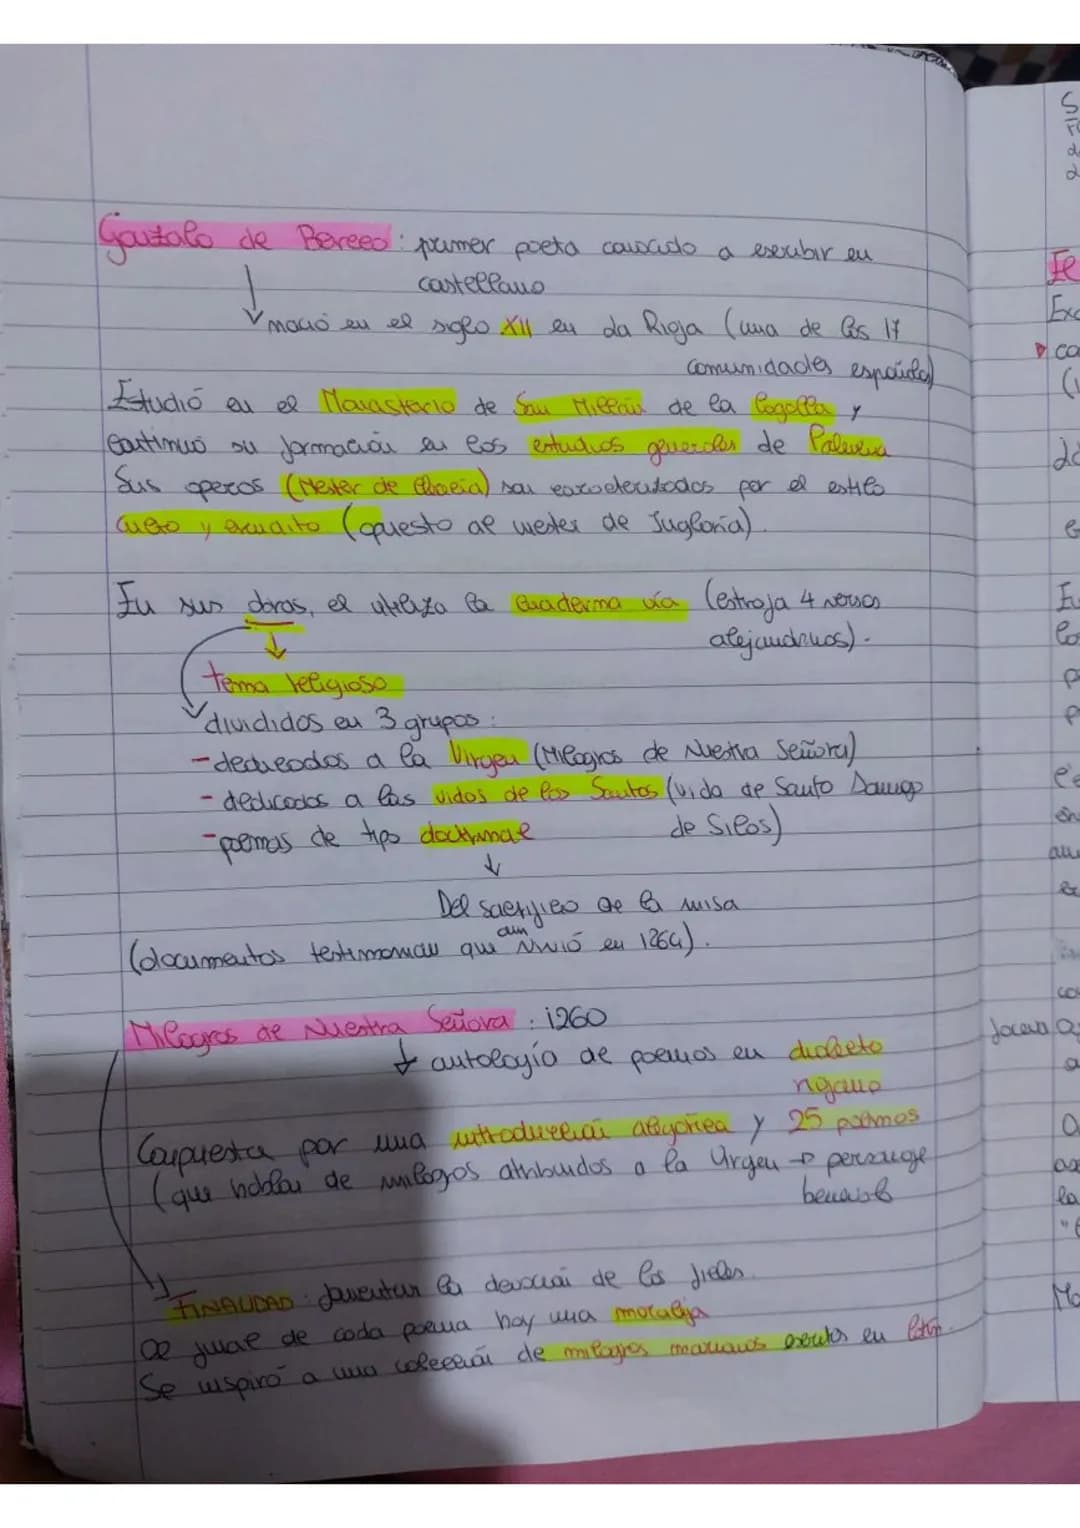 Gonzalo de Berceo : primer poeta conocido a escribir en
castellano
nació en el siglo XII en La Rioja (una de las 17
comunidades española)
Estudió en el Monasterio de San Millán de la Cogolla y
continuó su formación en los estudios generales de Palencia
Sus operas (Mester de Clerecia) son caracterizados por el estilo
culto y erudito (opuesto al mester de Jugloría).
En sus obras, el utiliza la cuaderma vía (estroja 4 versos
alejandrinos).
tema religioso
divididos en 3 grupos :
- dedicados a la Virgen (Milagros de Nuestra Señora)
- dedicados a las vidas de los Santos (vida de Santo Domingo
de Silos)
- poemas de tipo doctrinal
Del sacrificio de la misa
aun
(documentos testimonian que vivió en 1264).
Milagros de Nuestra Señora : 1260
antología de poemas en dialecto
riojano
Compuesta por una introducción alegórica y 25 poemas
(que hablan de milagros atribuidos a la Virgen → personage
benevolo
FINALIDAD : fomentar la devoción de los fieles.
Al final de cada poema hay una moraleja
Se inspiró a una colección de milagros marianos escritos en latín.
S
d
Fe
Exc
ca
e
Eu
lo
p
p
e
co
Jocen
a
a
la
Mo